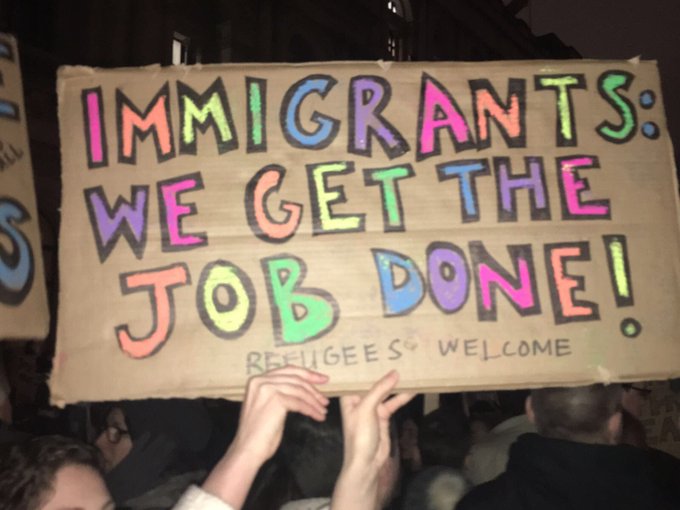 IMMIGRANTS:
WE GET THE
JOB DONE!
REFUGEES WELCOME